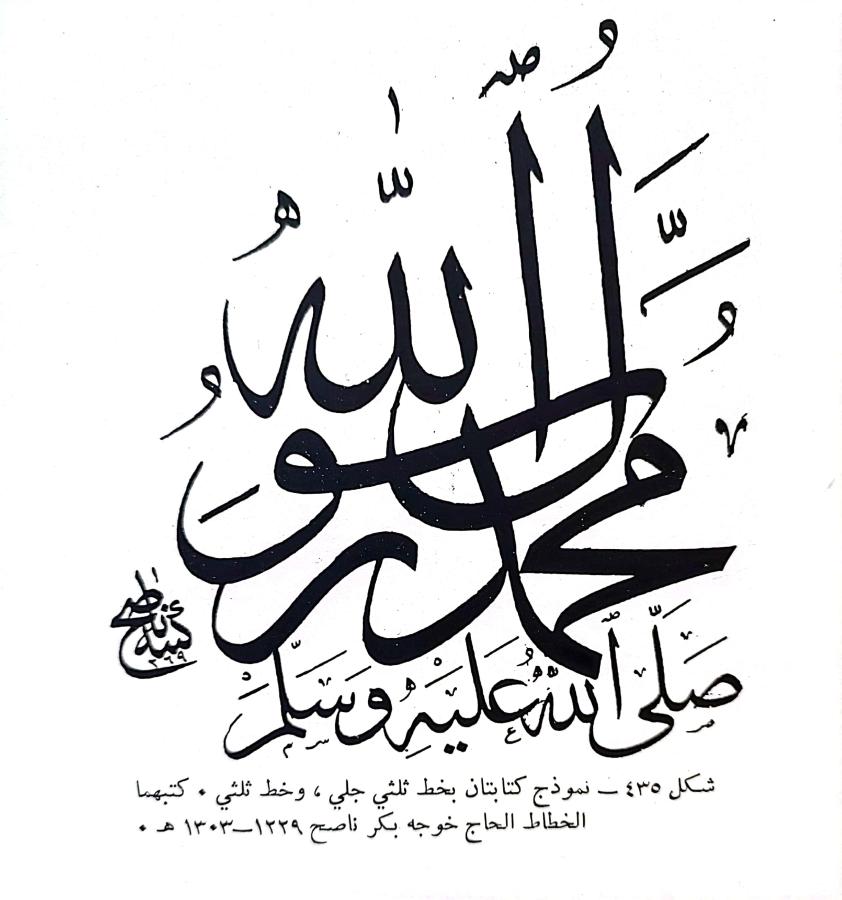 محمد رسول الله
صَلَّى اللهُ عَلَيْهِ وَسَلَّمَ
شكل ٤٣٥ – نموذج كتابتان بخط ثلثي جلي ، وخط ثلثي . كتبهما
الخطاط الحاج خوجه بكر ناصح ١٢٢٩–١٣٠٣ هـ .